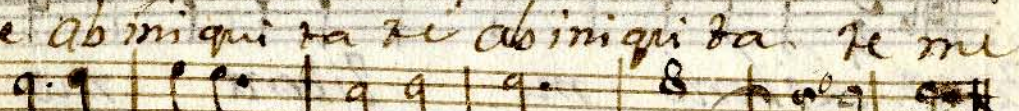 e ab ini qui ta te ab ini qui ta te me